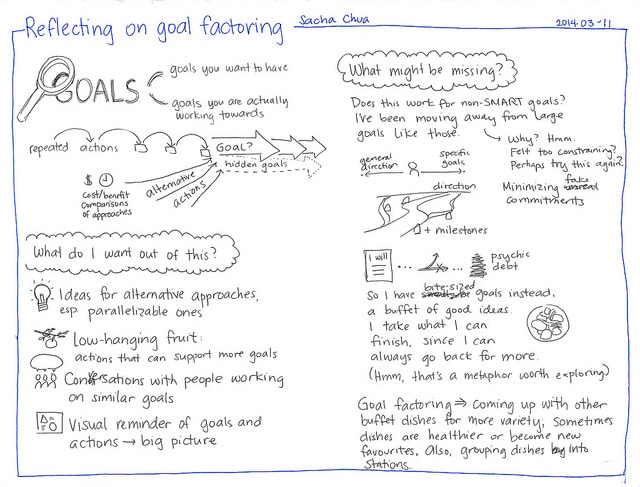 Reflecting on goal factoring
Sacha Chua
2014-03-11
GOALS
goals you want to have
goals you are actually
working towards
repeated actions
GOAL?
hidden goals
$
cost/benefit
comparisons
of approaches
alternative
actions
What do I want out of this?
Ideas for alternative approaches,
esp. parallelizable ones
Low-hanging fruit:
actions that can support more goals
Conversations with people working
on similar goals
Visual reminder of goals and
actions → big picture
What might be missing?
Does this work for non-SMART goals?
I've been moving away from large
goals like those.
Why? Hmm.
Felt too constraining?
Perhaps try this again?
general
direction
specific
goals
Minimizing fake
commitments
direction
+ milestones
I will
... ...
psychic
debt
bite-sized
So I have goals instead,
a buffet of good ideas.
I take what I can
finish, since I can
always go back for more.
(Hmm, that's a metaphor worth exploring)
Goal factoring ⇒ coming up with other
buffet dishes for more variety; sometimes
dishes are healthier or become new
favourites. Also, grouping dishes into
stations.